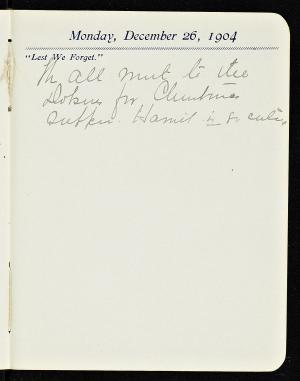 Monday, December 26, 1904
"Lest We Forget."
We all went to the
for Christmas
supper. Harriet is so